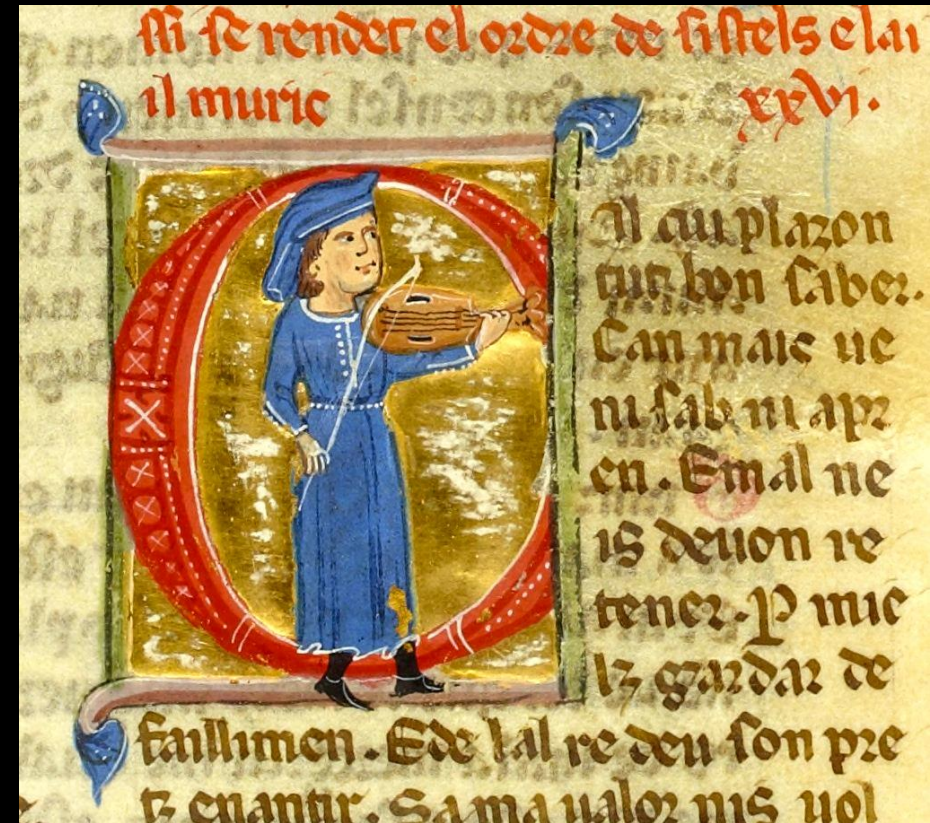 ssi se rendet el ordre de sistels e lai
il muric xxvi.
Al cui plazon
tutz bon saber.
Can mais ue
ni sab ni apr
en. E m al ne
is deuon re
tener. P mie
lz gardar de
faillimen. E de l al re deu son pre
tz enantir. Sa ma ualor nis uol